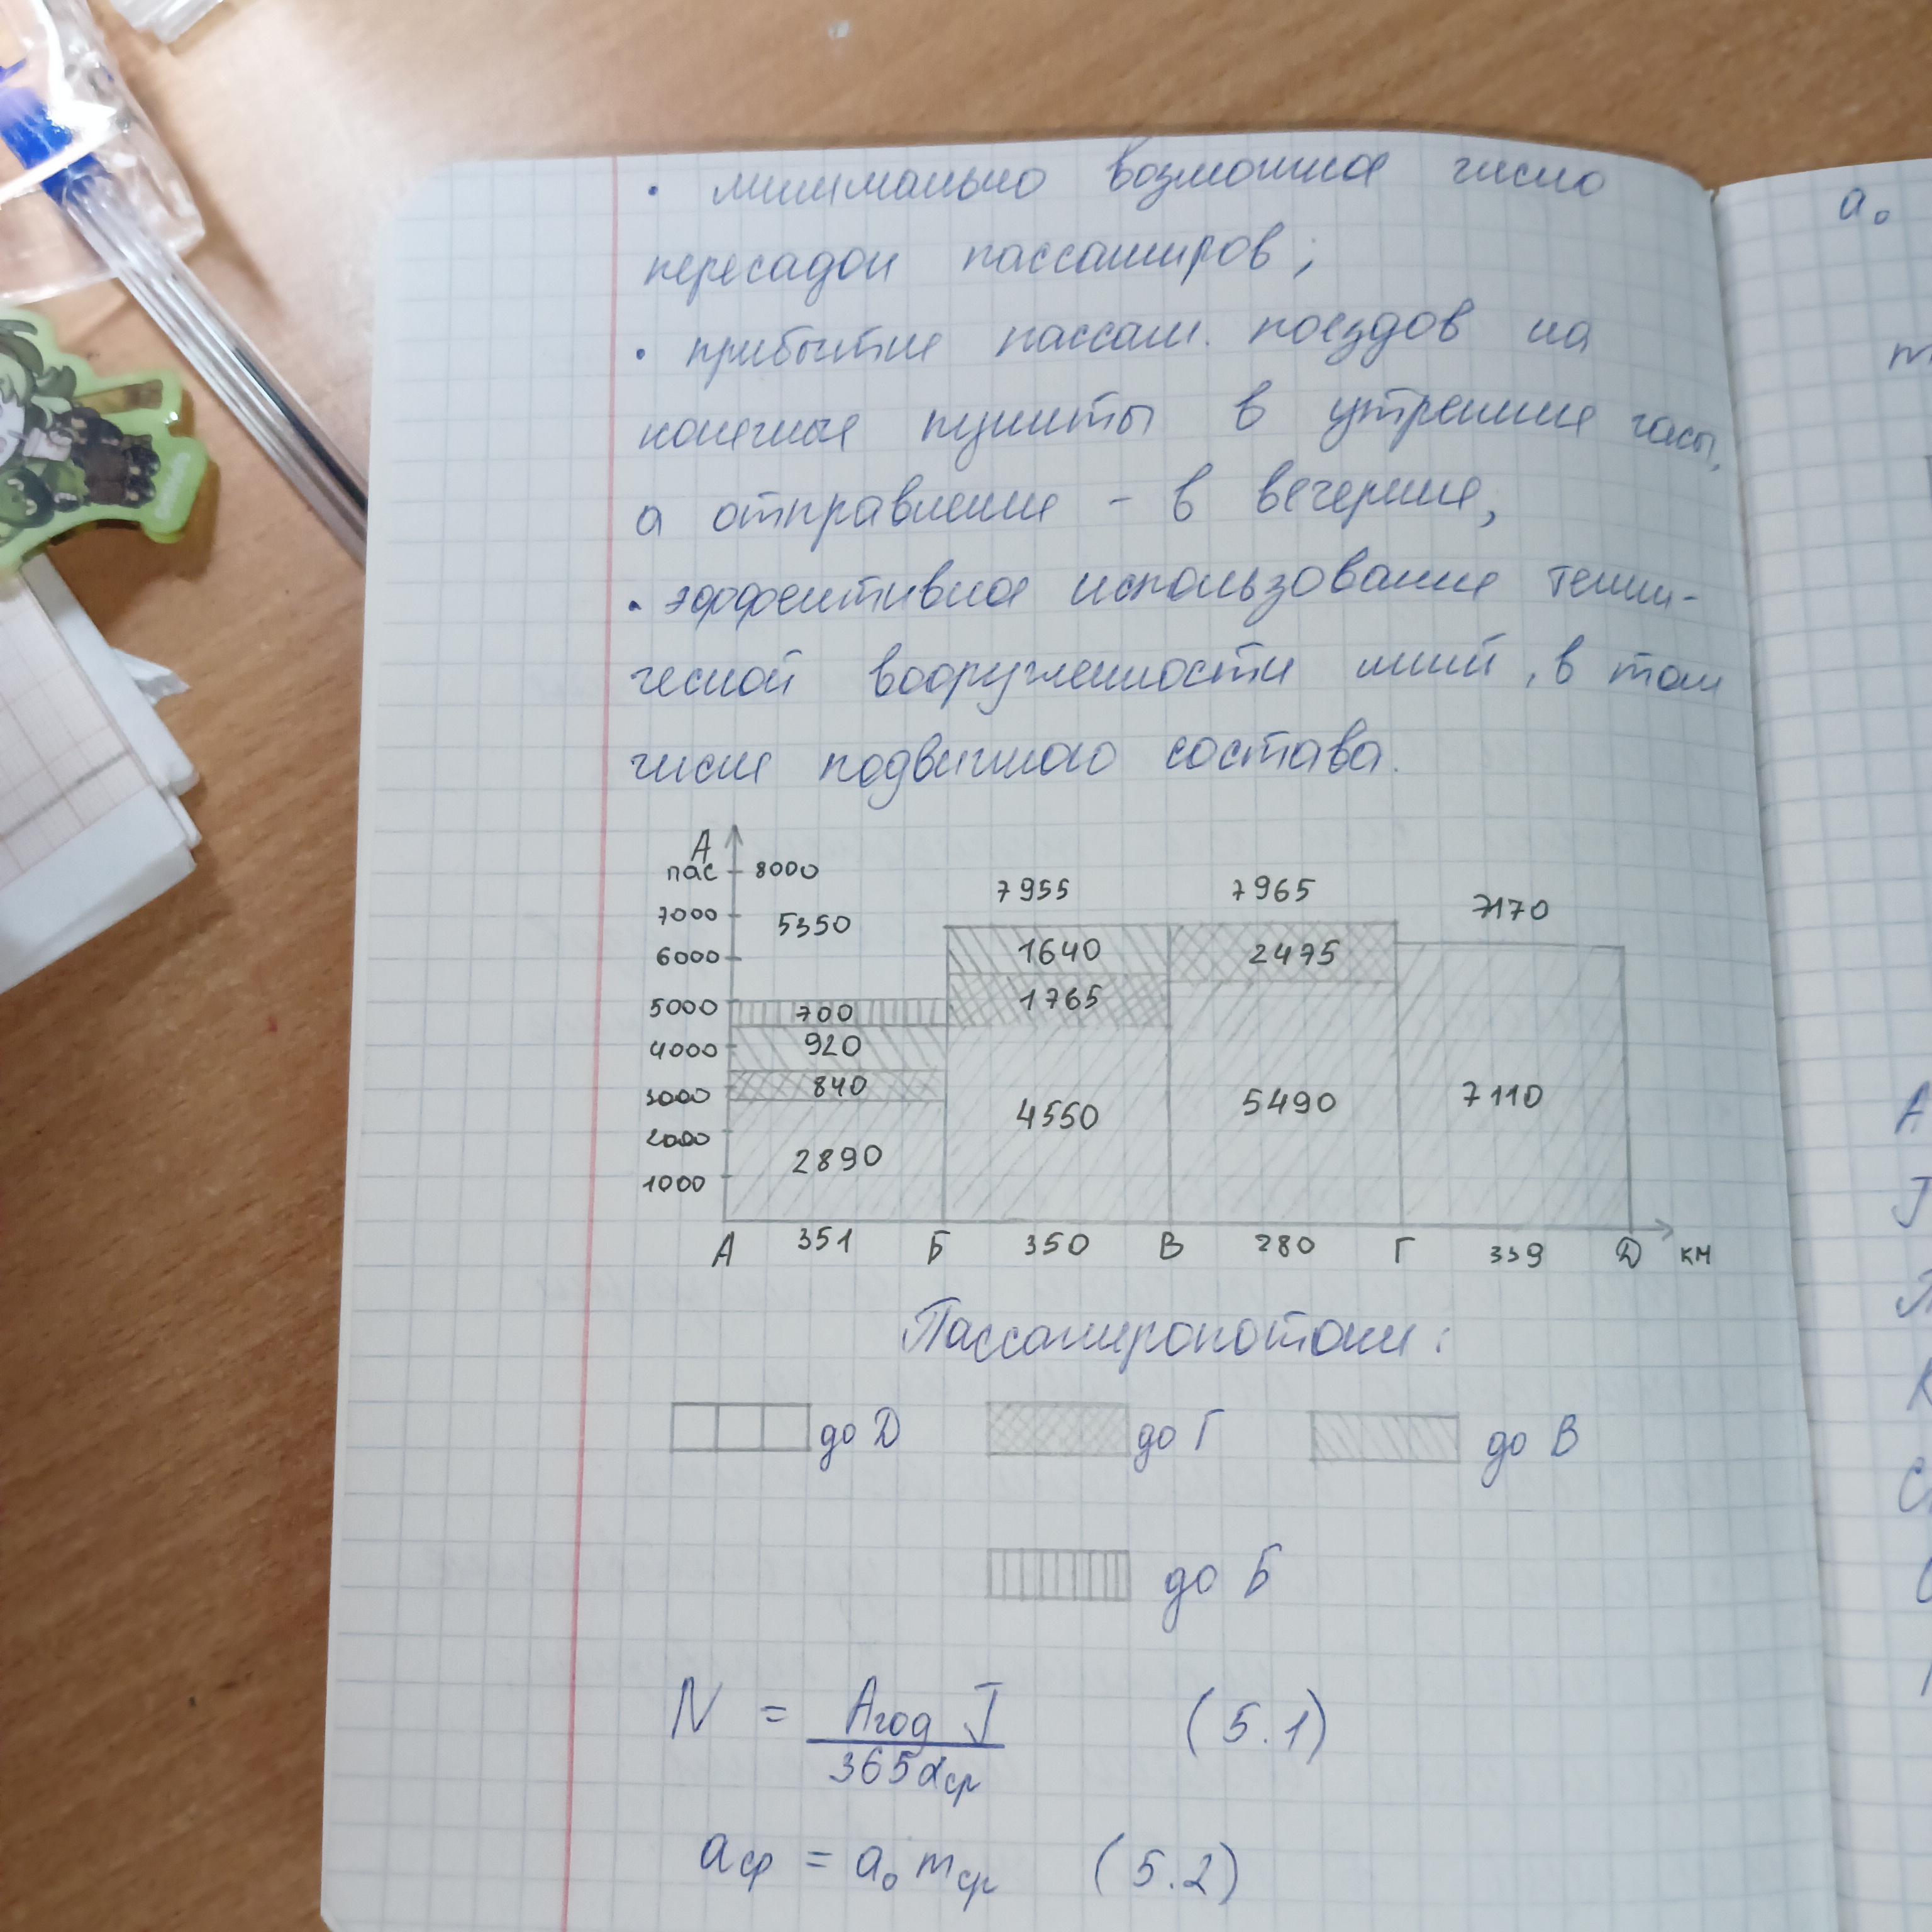 • минимально возможное число
пересадок пассажиров;
• прибытие пассаж. поездов на
конечные пункты в утренние часы,
а отправление - в вечерние,
• эффективное использование техни-
ческой вооруженности линий, в том
числе подвижного состава.
А
пас 8000
7955 7965 7170
7000 5350
6000 1640 2475
5000 700 1765
4000 920
3000 840 4550 5490 7110
2000
1000 2890
А 351 Б 350 В 280 Г 339 Д км
Пассажиропотоки:
до Д до Г до В
до Б
N = Aгод J / 365αср (5.1)
aср = a₀ mср (5.2)
a₀